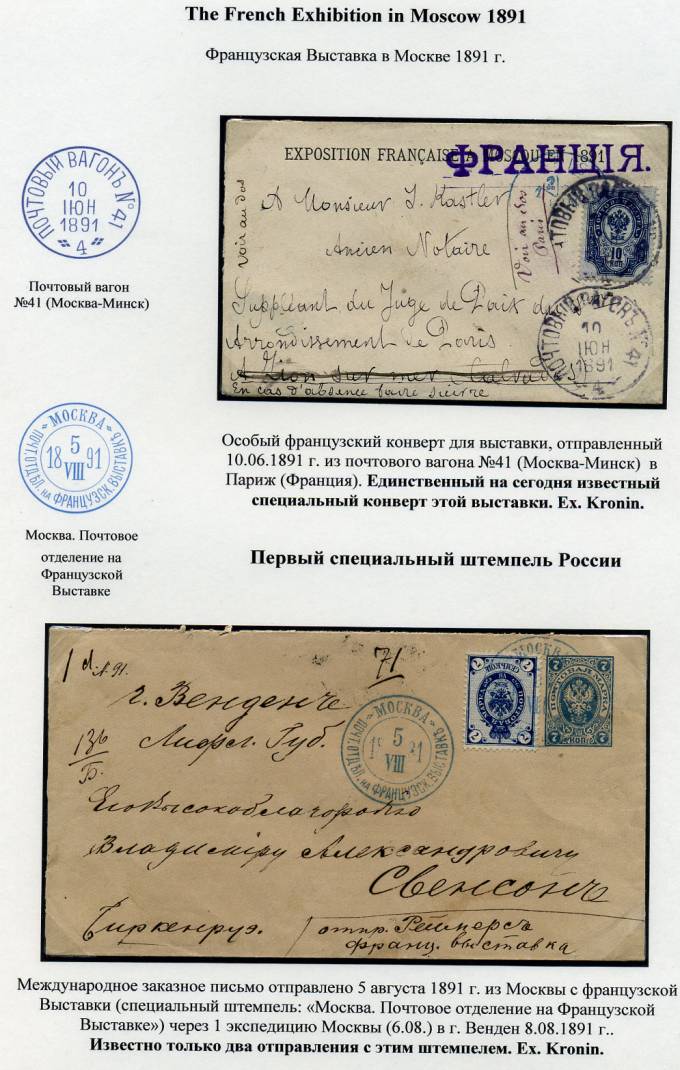 The French Exhibition in Moscow 1891
Французская Выставка в Москве 1891 г.
ПОЧТОВЫЙ ВАГОНЪ № 41
10
ІЮН
1891
4
Почтовый вагон
№41 (Москва-Минск)
EXPOSITION FRANÇAISE A MOSCOU EN 1891
ФРАНЦІЯ.
Voir au dos
A Monsieur J. Kastler
Ancien Notaire
Voir au dos
Paris
Suppléant du Juge de Paix de
Arrondissement de Paris
En cas d'absence faire suivre
10 КОП
ПОЧТОВЫЙ ВАГОНЪ № 41
10
ІЮН
1891
4
Особый французский конверт для выставки, отправленный
10.06.1891 г. из почтового вагона №41 (Москва-Минск) в
Париж (Франция). Единственный на сегодня известный
специальный конверт этой выставки. Ex. Kronin.
МОСКВА
5
18 91
VIII
ПОЧТ. ОТДѢЛ. НА ФРАНЦУЗСК. ВЫСТАВКѢ
Москва. Почтовое
отделение на
Французской
Выставке
Первый специальный штемпель России
71
г. Венденъ
Лифл. Губ.
136
Б.
Его Высокоблагородію
Владиміру Александровичу
Свенсонъ
Биркенруэ.
отпр. Реймерсъ
франц. выставка
МОСКВА
5
VIII
ПОЧТ. ОТДѢЛ. НА ФРАНЦУЗСК. ВЫСТАВКѢ
2
2
7 КОП. 7
Международное заказное письмо отправлено 5 августа 1891 г. из Москвы с французской
Выставки (специальный штемпель: «Москва. Почтовое отделение на Французской
Выставке») через 1 экспедицию Москвы (6.08.) в г. Венден 8.08.1891 г..
Известно только два отправления с этим штемпелем. Ex. Kronin.